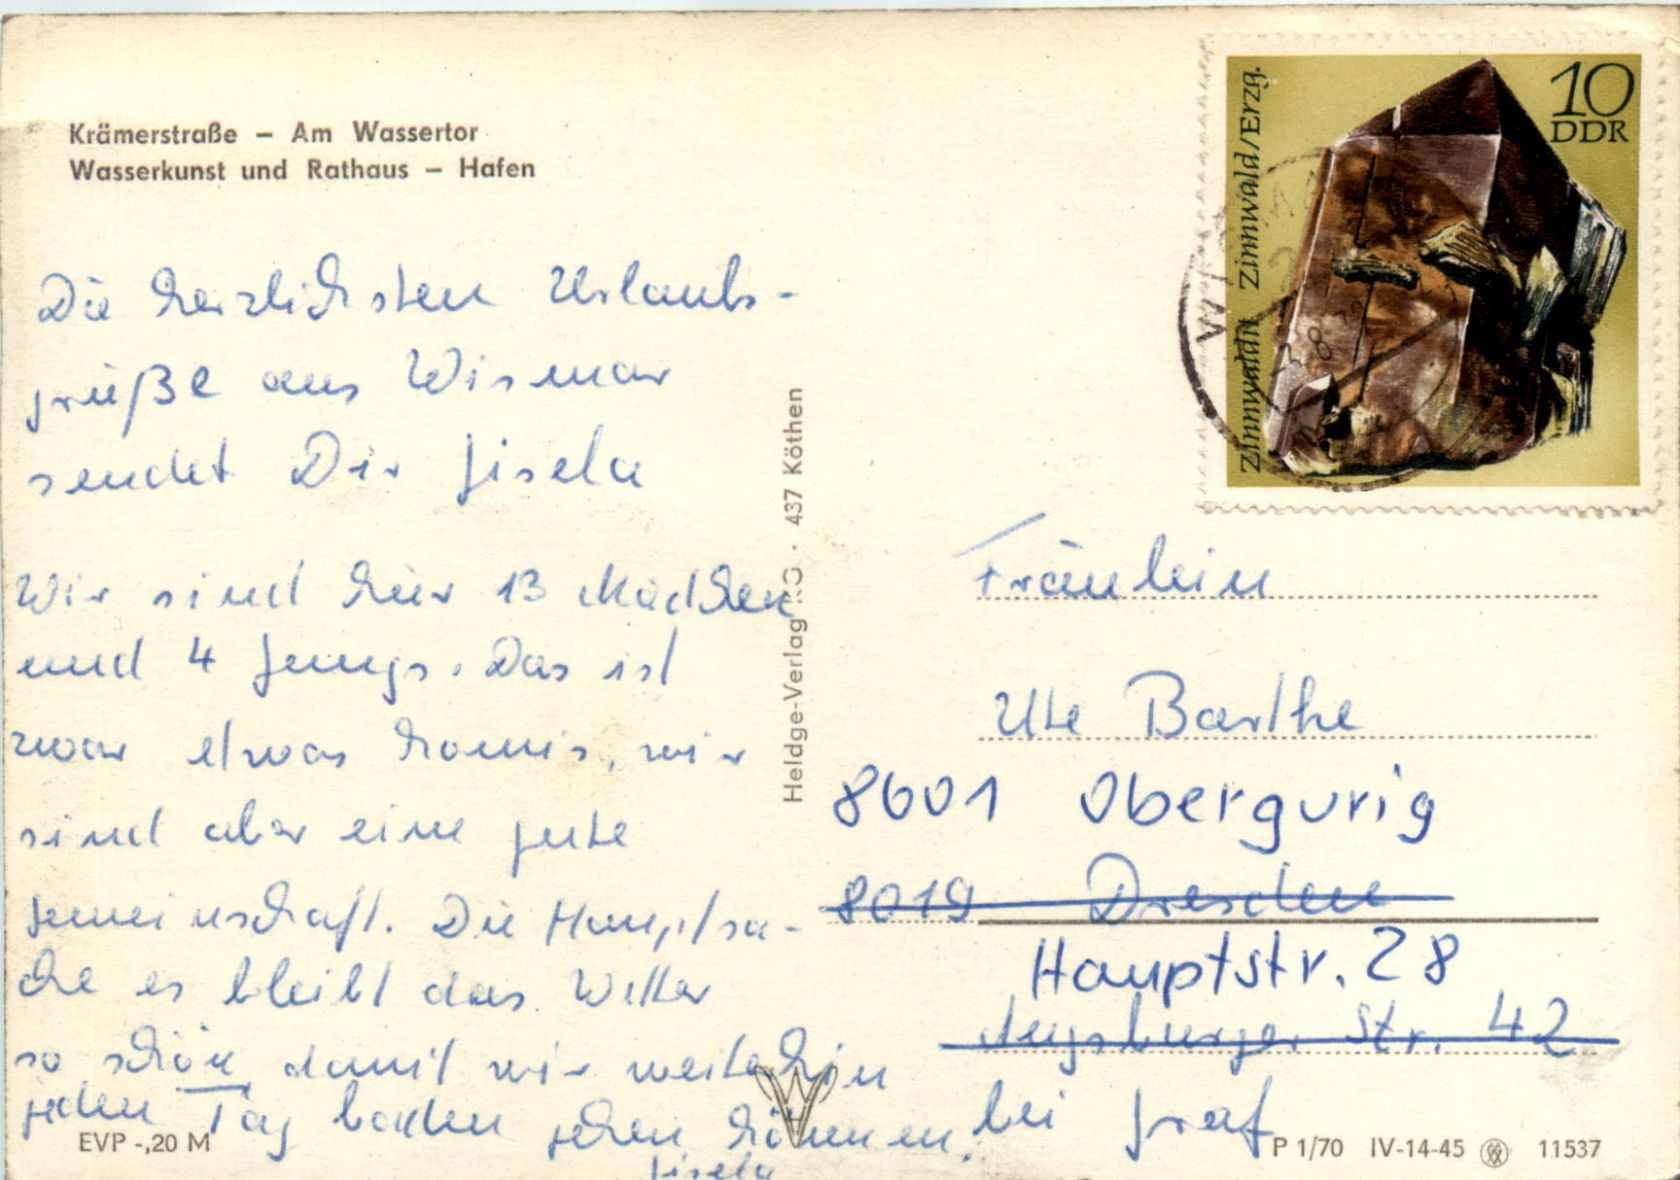 Krämerstraße – Am Wassertor
Wasserkunst und Rathaus – Hafen
Die herzlichsten Urlaubs-
grüße aus Wismar
sendet Dir Gisela
Wir sind hier 13 Mädchen
und 4 Jungs. Das ist
zwar etwas, wir
sind aber eine gute
Gemeinschaft. Die Hauptsa-
che es bleibt das Wetter
so schön damit wir weiterhin
jeden Tag baden gehen können.
Gisela
EVP -,20 M
Heldge-Verlag KG · 437 Köthen
10
DDR
Zinnwaldit Zinnwald/Erzg.
Fräulein
Ute Barthe
8601 Obergurig
8019 Dresden
Hauptstr. 28
Augsburger Str. 42
bei Graf
P 1/70 IV-14-45 11537